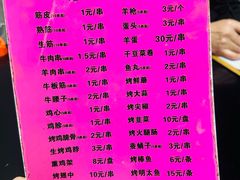 筋皮 1元/串
熟筋 1元/串
生筋 1元/串
牛肉串 2元/串
羊肉串 2元/串
牛板筋 1元/串
牛腰子 2元/串
鸡心 1元/串
鸡胗 1元/串
鸡脆骨 1元/串
生烤鸡脖 3元/串
熏鸡架 8元/盒
烤翅中 10元/串
羊枪 3元/个
蛋头 3元/串
羊蛋 30元/串
干豆菜卷 1元/串
鱼丸 2元/串
烤鲜蘑 1元/串
烤大蒜 1元/串
烤尖椒 2元/串
烤豆菜 10元/盒
烤火腿肠 2元/串
蚕蛹子 2元/串
烤棒鱼 6元/条
烤明太鱼 15元/条